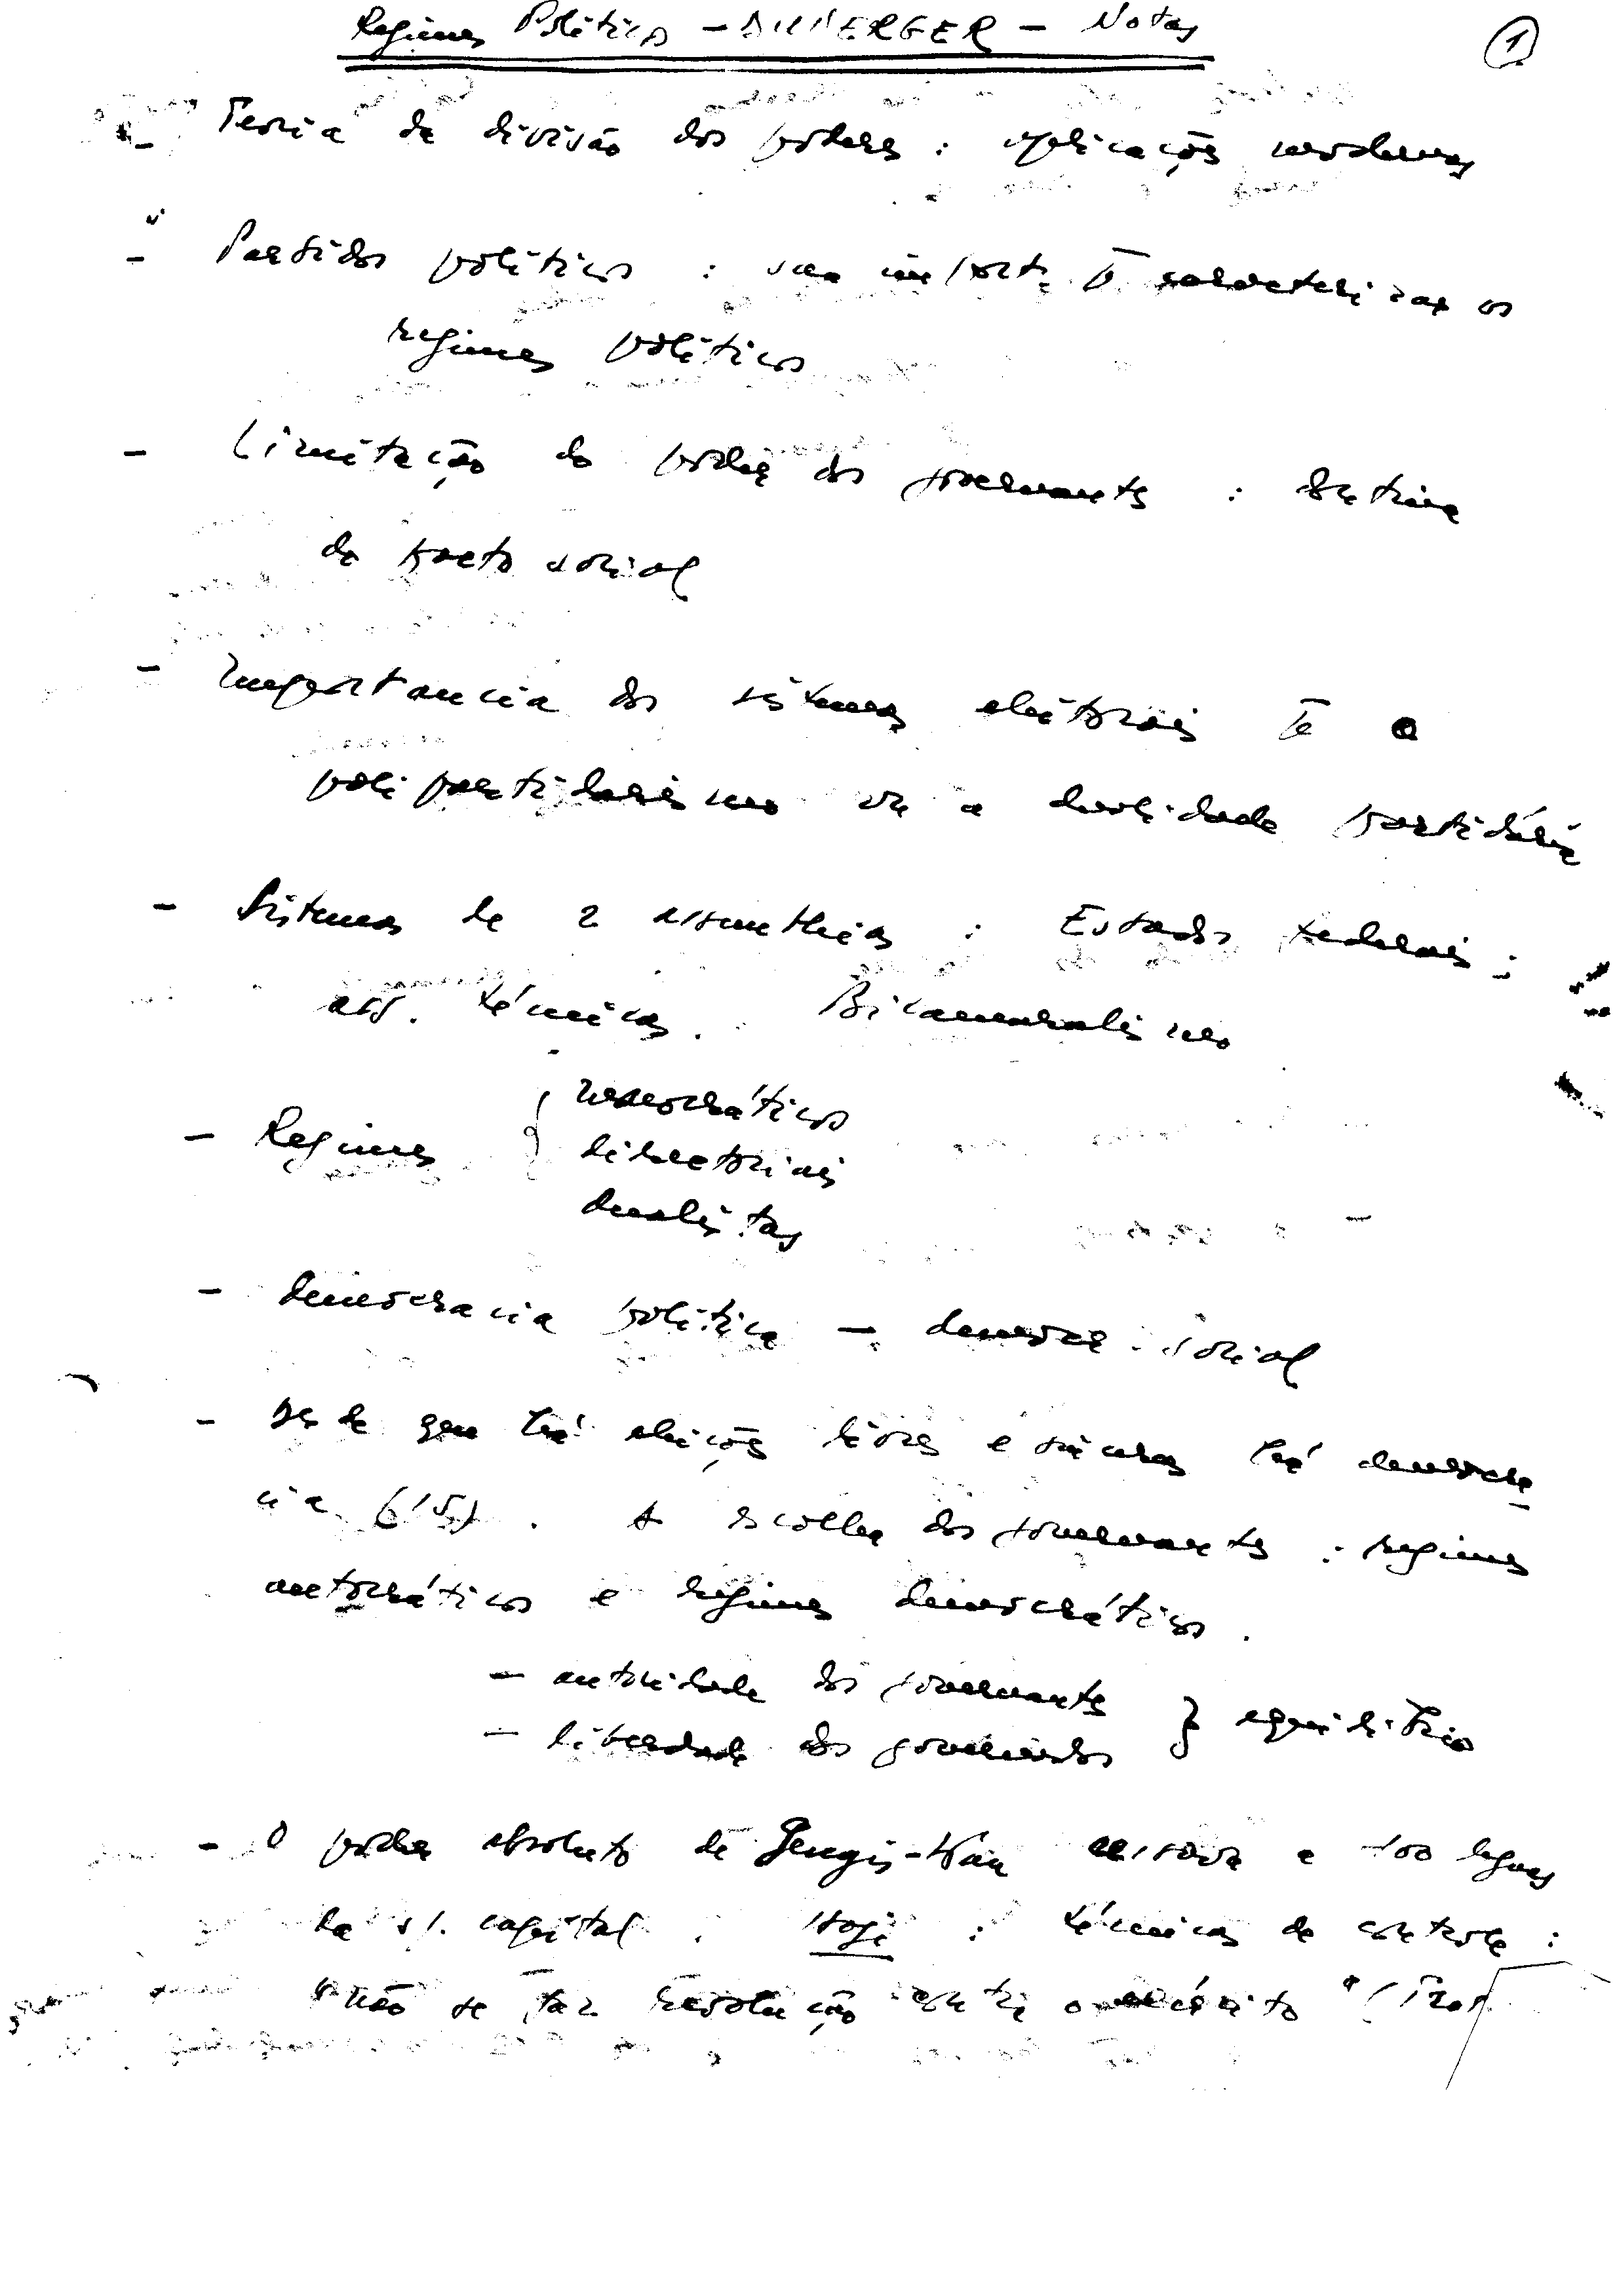 Regimes Políticos - DUVERGER - Notas
1
- Teoria da divisão dos poderes : aplicações modernas
- Partidos políticos : sua import. p. caracterizar os
regimes políticos
- Limitação do poder dos governantes : doutrina
do pacto social
- Importancia dos sistemas eleitorais p. o
poli partidarismo ou a dualidade partidária
- Sistemas de 2 assembleias : Estados federais ;
ass. técnicas. Bicameralismo
- Regimes { democráticos
directoriais
dualistas
- democracia política - democr. social
- Desde que há eleições livres e sinceras há democra
cia (15). A escolha dos governantes : regimes
autocráticos e regimes democráticos.
- autoridade dos governantes
- liberdade dos governados } equilíbrio
- O poder absoluto de Gengis-Kan a 100 leguas
da s/. capital. Hoje : técnicas de controle :
"não se faz revolução contra o exército" (Prof.